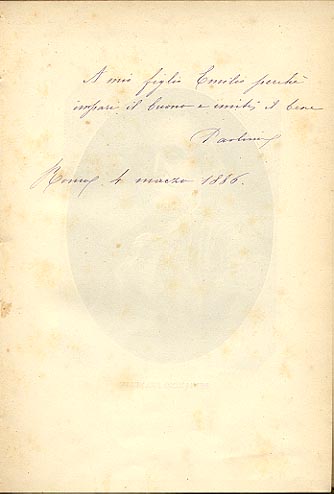 A mio figlio Emilio perchè
impari il buono e imiti il bene
Paolina
Roma 4 marzo 1886.